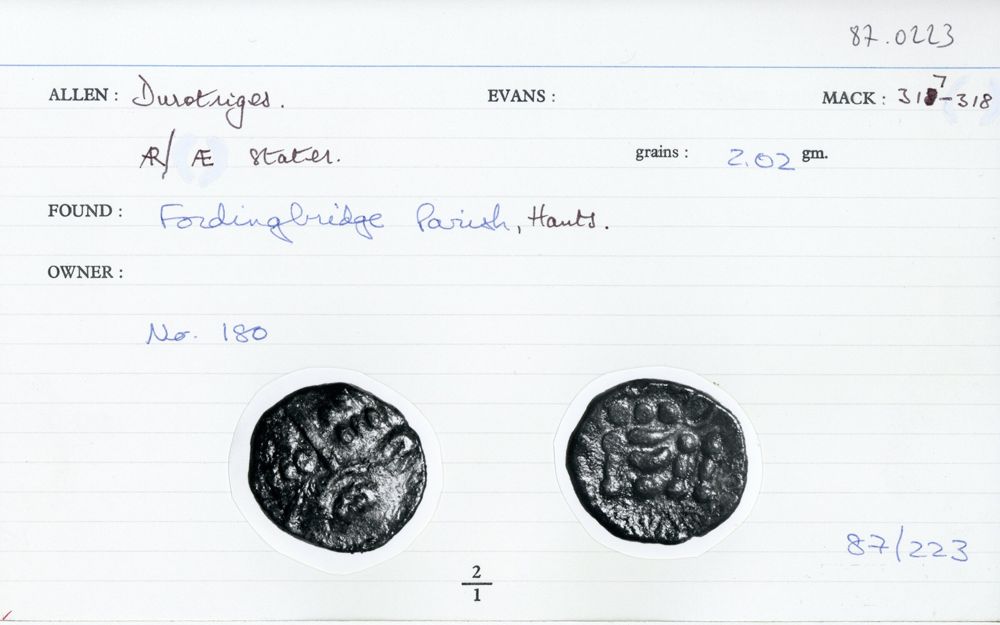 87.0223
ALLEN : Durotriges. EVANS : MACK : 317-318
AR/ Æ Stater. grains : 2.02 gm.
FOUND : Fordingbridge Parish, Hants.
OWNER :
No. 180
87/223
2
1